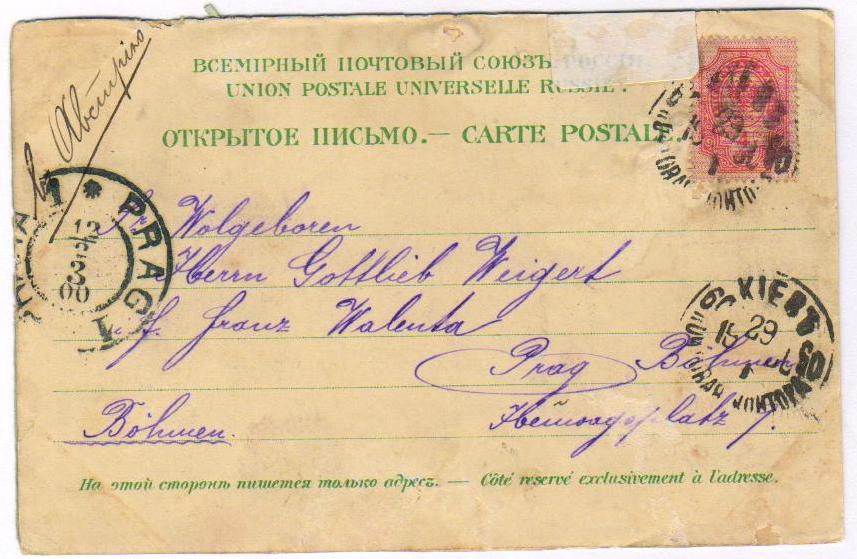 въ Австрію
ВСЕМІРНЫЙ ПОЧТОВЫЙ СОЮЗЪ. РОССІЯ.
UNION POSTALE UNIVERSELLE RUSSIE.
ОТКРЫТОЕ ПИСЬМО. — CARTE POSTALE.
PRAG 1
Sr. Wolgeboren
Herrn Gottlieb Weigert
Franz Walenta
Prag Böhmen
Böhmen.
КІЕВЪ
29
На этой сторонѣ пишется только адресъ. — Côté réservé exclusivement à l'adresse.